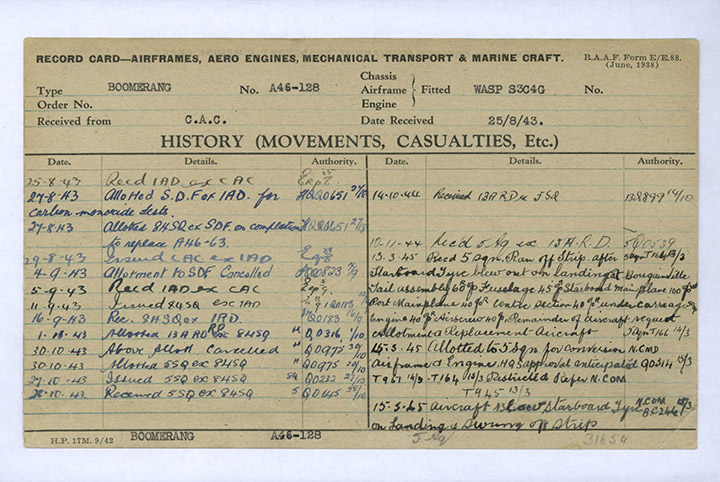 RECORD CARD—AIRFRAMES, AERO ENGINES, MECHANICAL TRANSPORT & MARINE CRAFT.
R.A.A.F. Form E/E.88.
(June, 1938)
Type BOOMERANG No. A46-128 Chassis Airframe Engine } Fitted WASP S3C4G No.
Order No.
Received from C.A.C. Date Received 25/8/43.
HISTORY (MOVEMENTS, CASUALTIES, Etc.)
Date. Details. Authority.
25-8-43 Recd 1AD ex CAC
27-8-43 Allotted S.D.F ex 1AD. for Q0651 27/8
carbon monoxide tests.
27-8-43 Allotted 84SQ ex SDF on completion Q0651 27/8
to replace A46-63.
29-8-43 Issued CAC ex 1AD
4-9-43 Allotment to SDF Cancelled
5-9-43 Recd 1AD ex CAC
11-9-43 Issued 84SQ ex 1AD
16-9-43 Rec. 84SQ ex 1AD. Q0183
1-10-43 Allotted 13ARD ex 84SQ " Q0316 1/10
30-10-43 Above Allott Cancelled " Q0975 30/10
30-10-43 Allotted 5SQ ex 84SQ " Q0975 30/10
27-10-43 Issued 5SQ ex 84SQ 84 Q0222 27/10
28-10-43 Received 5SQ ex 84SQ 5 Q0145
Date. Details. Authority.
14-10-44 Received 13ARD ex 5SQ 13Q899 14/10
10-11-44 Rec'd 5 Sq ex 13 A.R.D. 5Q0539
13-3-45 Recd 5 Sqn. Ran off Strip after 5Sqn T166 13/3
Starboard Tyre blew out on landing at Bougainville
Tail assembly 60% Fuselage 45% Starboard Mainplane 100%
Port Mainplane 40% Centre Section 40% undercarriage
Engine 40% Airscrew 40%. Remainder of Aircraft
Allotment a Replacement Aircraft 5Sqn T166 13/3
15-3-45 Allotted to 5 Sqn for conversion N.CMD
Airframe & Engine. HQS approval anticipated Q0514 15/3
T967 T164 13/3 N.COM
T945 13/3
15-3-45 Aircraft Blew Starboard Tyre N.COM
on Landing & Swung off Strip
H.P. 17M. 9/42 BOOMERANG A46-128
31654